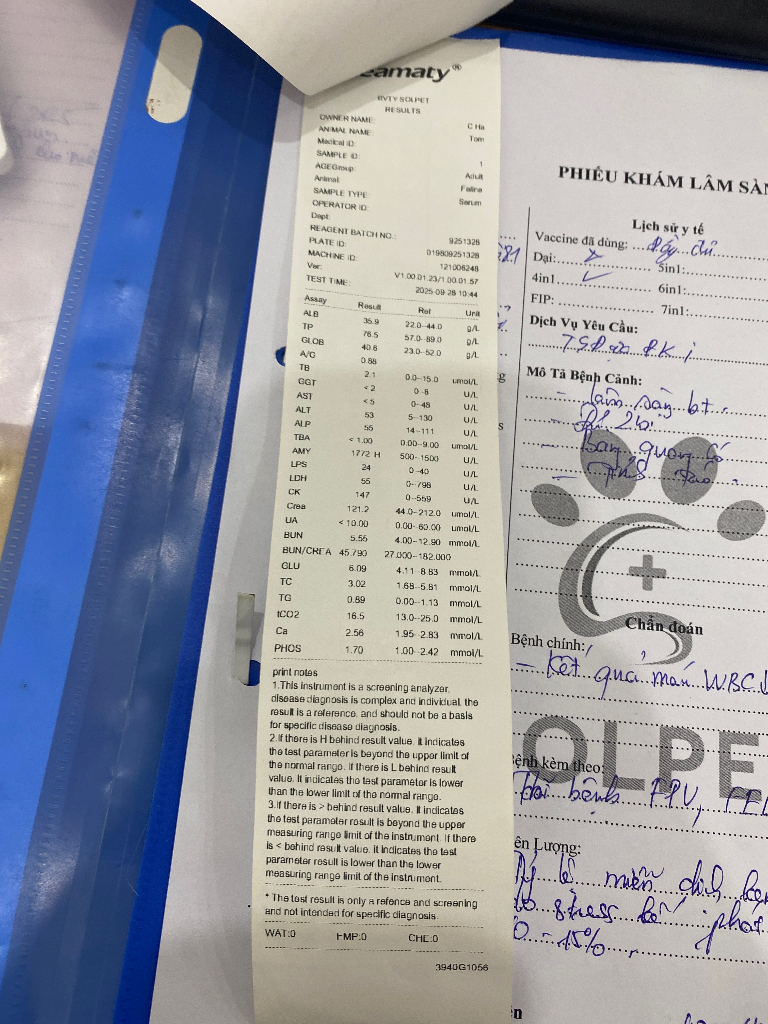 eamaty®
BVTY SOLPET
RESULTS
OWNER NAME: C Ha
ANIMAL NAME: Tom
Medical ID:
SAMPLE ID: 1
AGEGroup: Adult
Animal: Feline
SAMPLE TYPE: Serum
OPERATOR ID:
Dept:
REAGENT BATCH NO.: 9251328
PLATE ID: 019809251328
MACHINE ID: 121006248
Ver: V1.00.01.23/1.00.01.57
TEST TIME: 2025-09-28 10:44
Assay Result Ref Unit
ALB 35.9 22.0--44.0 g/L
TP 76.5 57.0--89.0 g/L
GLOB 40.6 23.0--52.0 g/L
A/G 0.88
TB 2.1 0.0--15.0 umol/L
GGT < 2 0--8 U/L
AST < 5 0--48 U/L
ALT 53 5--130 U/L
ALP 55 14--111 U/L
TBA < 1.00 0.00--9.00 umol/L
AMY 1772 H 500--1500 U/L
LPS 24 0--40 U/L
LDH 55 0--798 U/L
CK 147 0--559 U/L
Crea 121.2 44.0--212.0 umol/L
UA < 10.00 0.00--60.00 umol/L
BUN 5.55 4.00--12.90 mmol/L
BUN/CREA 45.790 27.000--182.000
GLU 6.09 4.11--8.83 mmol/L
TC 3.02 1.68--5.81 mmol/L
TG 0.89 0.00--1.13 mmol/L
tCO2 16.5 13.0--25.0 mmol/L
Ca 2.56 1.95--2.83 mmol/L
PHOS 1.70 1.00--2.42 mmol/L
print notes
1.This instrument is a screening analyzer,
disease diagnosis is complex and individual, the
result is a reference, and should not be a basis
for specific disease diagnosis.
2.If there is H behind result value, it indicates
the test parameter is beyond the upper limit of
the normal range. If there is L behind result
value. It indicates the test parameter is lower
than the lower limit of the normal range.
3.if there is > behind result value. It indicates
the test parameter result is beyond the upper
measuring range limit of the instrument. If there
is < behind result value, it indicates the test
parameter result is lower than the lower
measuring range limit of the instrument.
* The test result is only a refence and screening
and not intended for specific diagnosis
WAT:0 HMP:0 CHE:0
3940G1056
PHIẾU KHÁM LÂM SÀN
Lịch sử y tế
Vaccine đã dùng: Đầy đủ
Dại: 5in1:
4in1 6in1:
FIP: 7in1:
Dịch Vụ Yêu Cầu:
Mô Tả Bệnh Cảnh:
- Lâm sàng bt.
Chẩn đoán
Bệnh chính:
- Kết quả máu WBC
OLPE
ệnh kèm theo:
bệnh FPV,
ên Lượng:
lệ miễn dịch
do stress
- 15%.